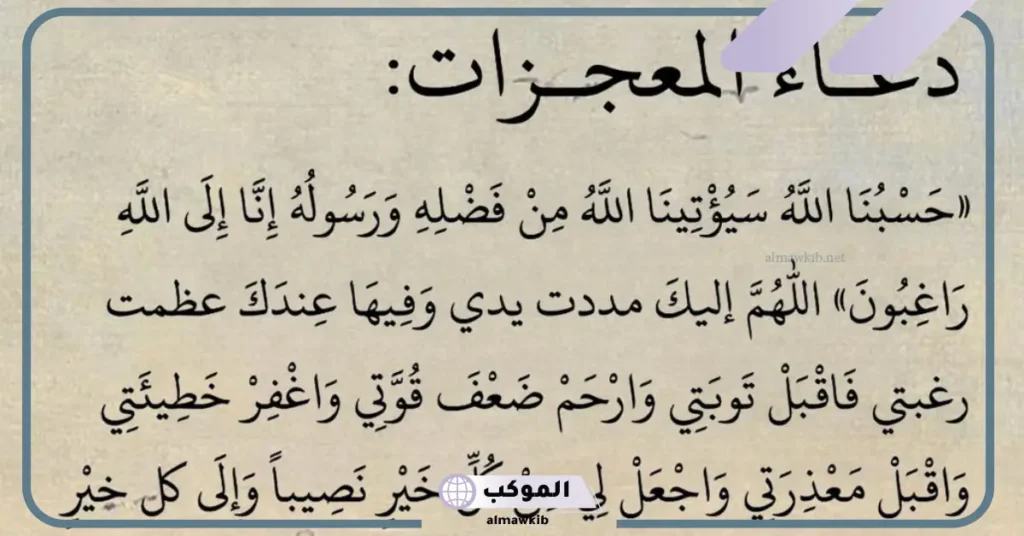 دعاء المعجزات:
«حَسْبُنَا اللَّهُ سَيُؤْتِينَا اللَّهُ مِنْ فَضْلِهِ وَرَسُولُهُ إِنَّا إِلَى اللَّهِ
almawkib.net
رَاغِبُونَ» اللَّهُمَّ إليكَ مددت يدي وَفِيهَا عِندَكَ عظمت
رغبتي فَاقْبَلْ تَوبَتِي وَارْحَمْ ضَعْفَ قُوَّتِي وَاغْفِرْ خَطِيئَتِي
وَاقْبَلْ مَعْذِرَتِي وَاجْعَلْ لِي مِنْ كُلِّ خَيْرٍ نَصِيباً وَإِلَى كل خيْرٍ
الموكب
almawkib